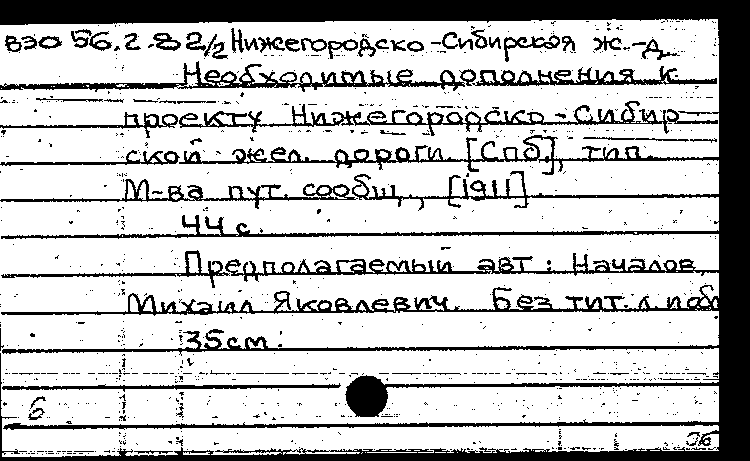 ВЭО 56.2.82/2 Нижегородско-Сибирская ж.-д.
Необходимые дополнения к
проекту Нижегородско-Сибир
ской жел. дороги. [Спб.], тип.
М-ва пут. сообщ., [1911].
44 с.
Предполагаемый авт: Началов,
Михаил Яковлевич. Без тит. л. и обл
35см.
6